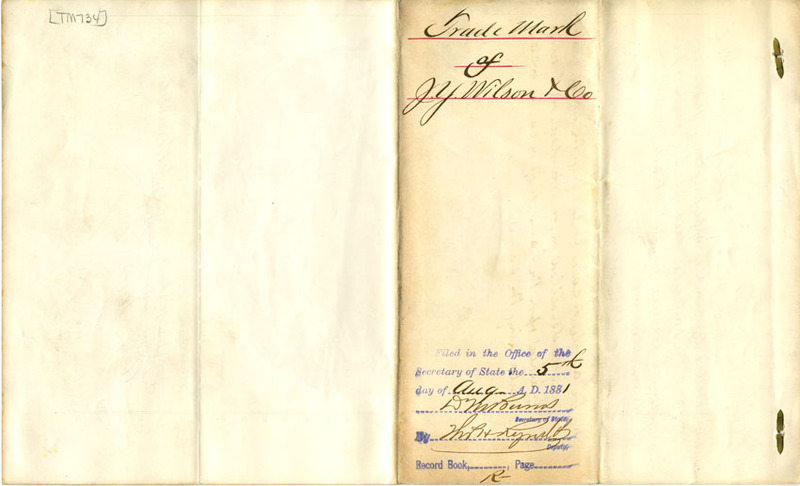 [TM734]
Trade Mark
of
J. Y. Wilson & Co
Filed in the Office of the
Secretary of State the 5th
day of Aug. A. D. 1881
D M Burns
Secretary of State
By Thos H Reynolds
Deputy
Record Book, , Page
R